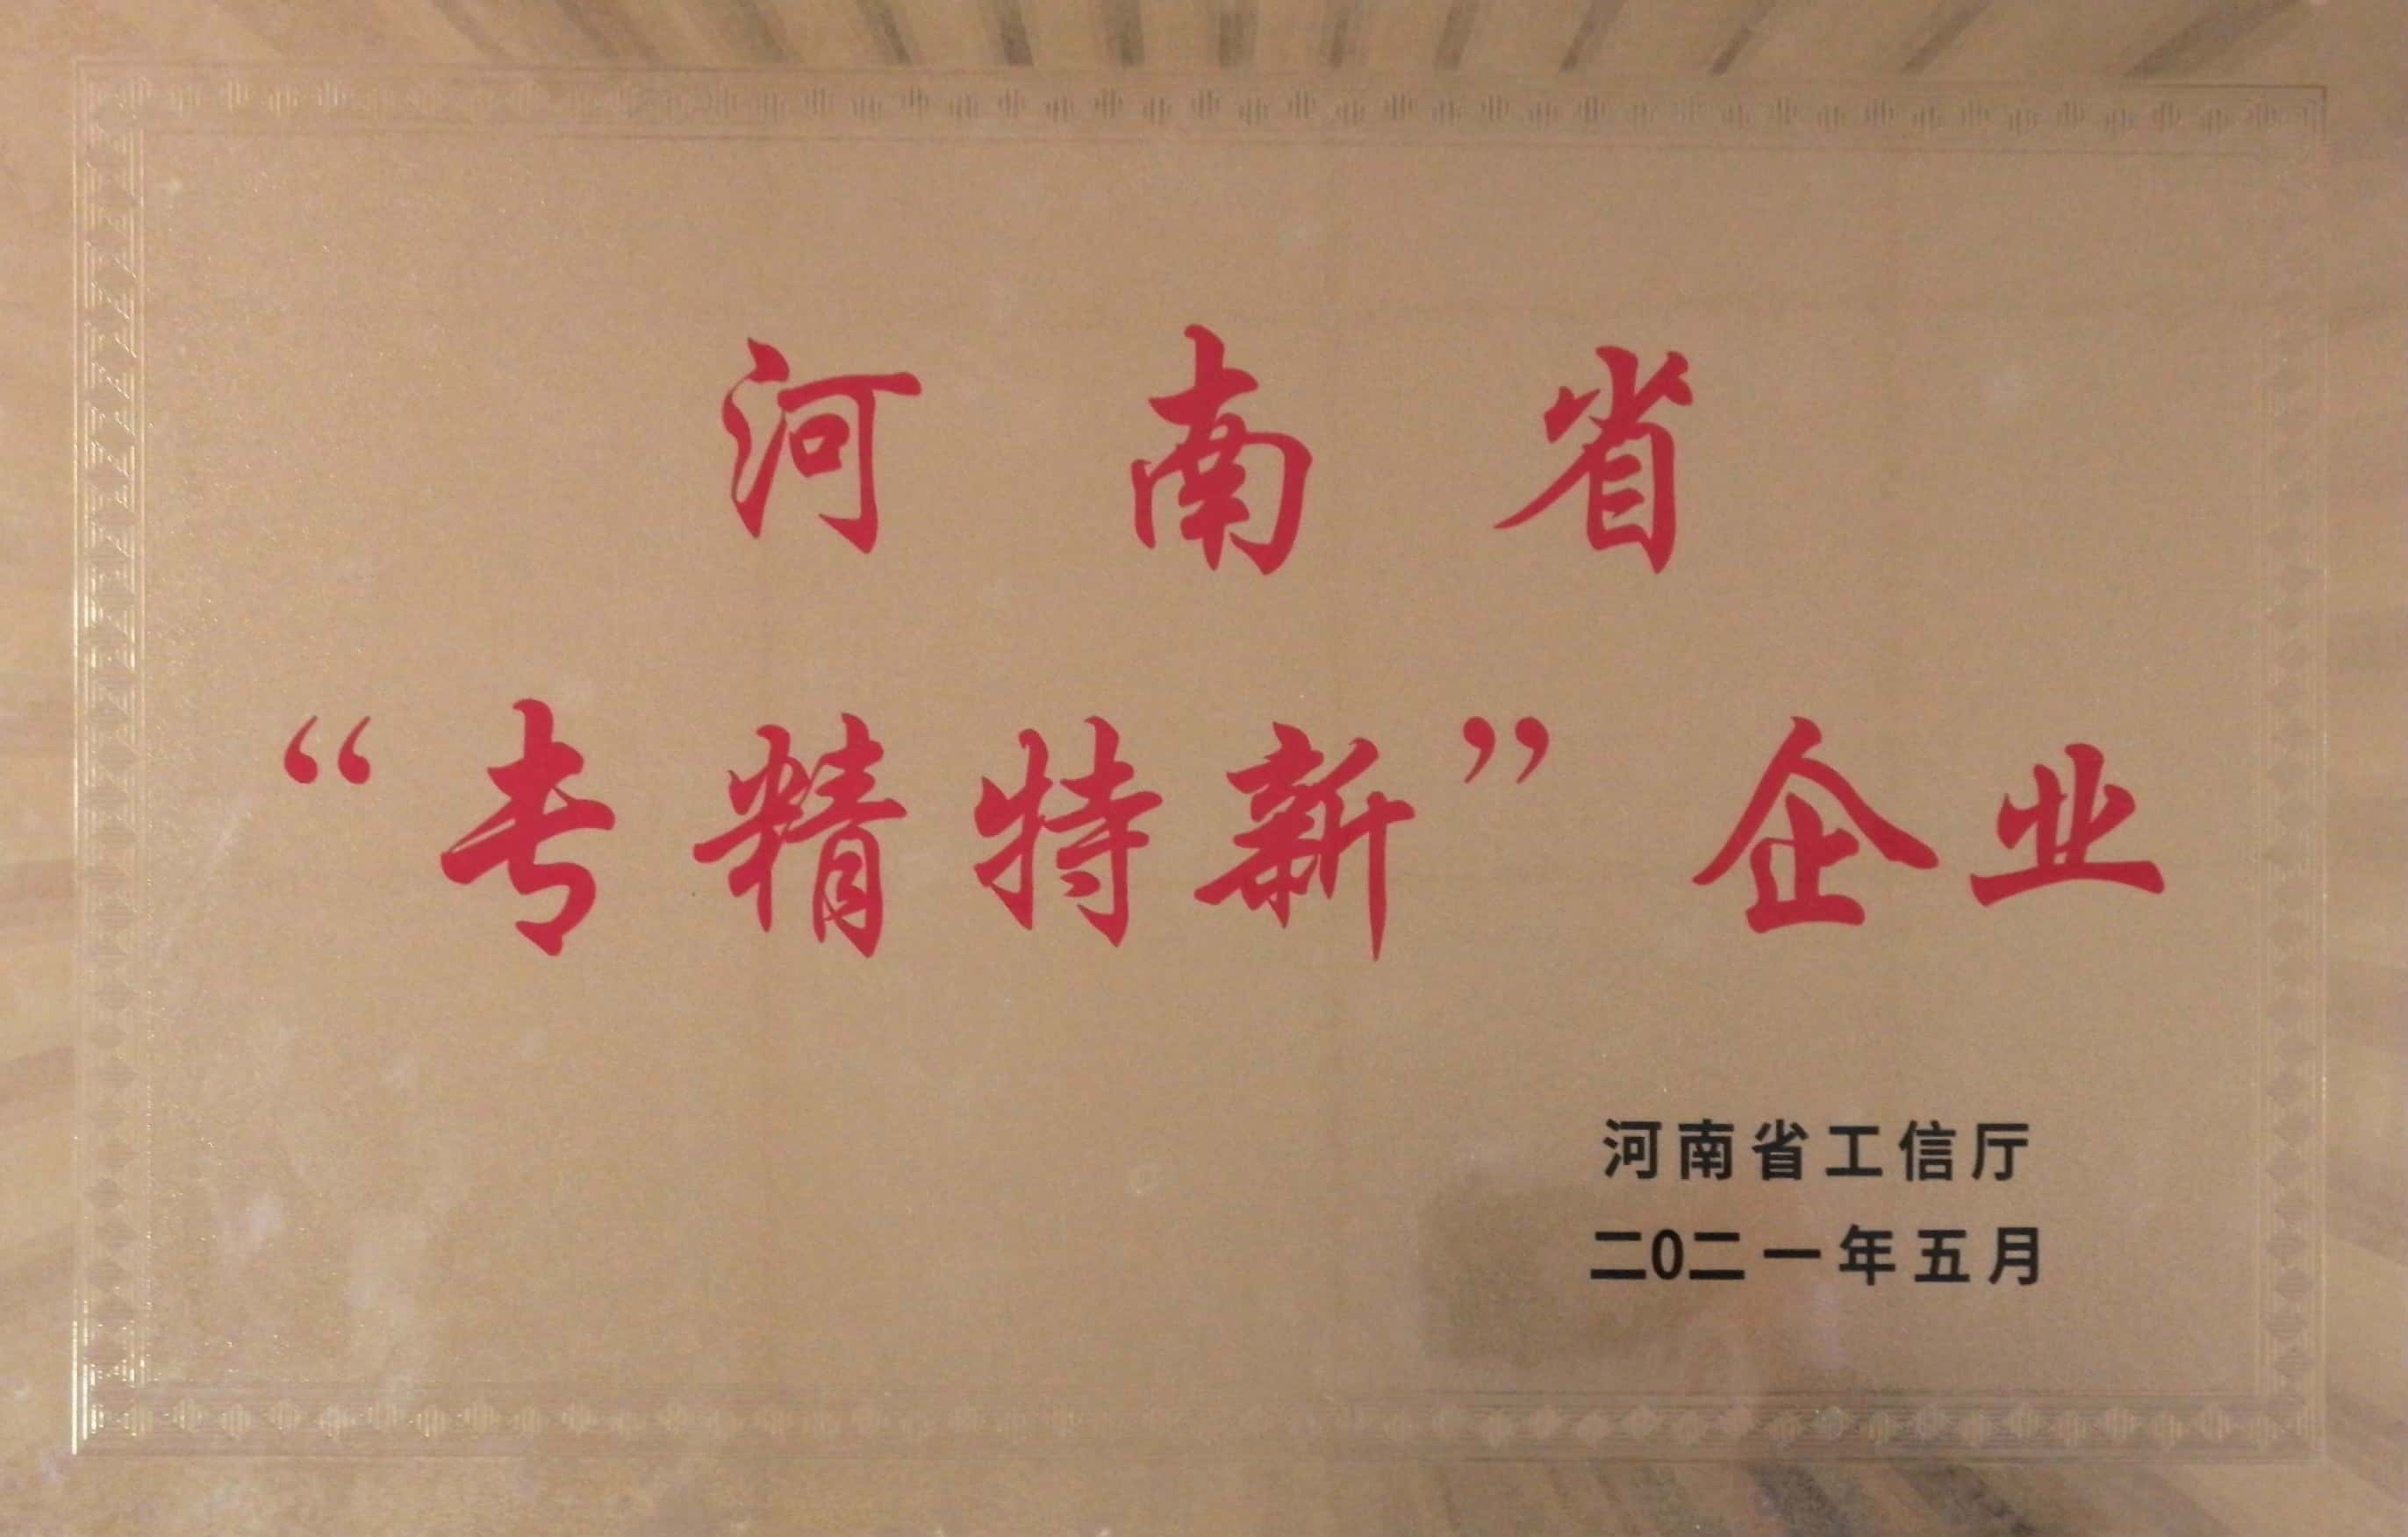 河南省
“专精特新”企业
河南省工信厅
二0二一年五月